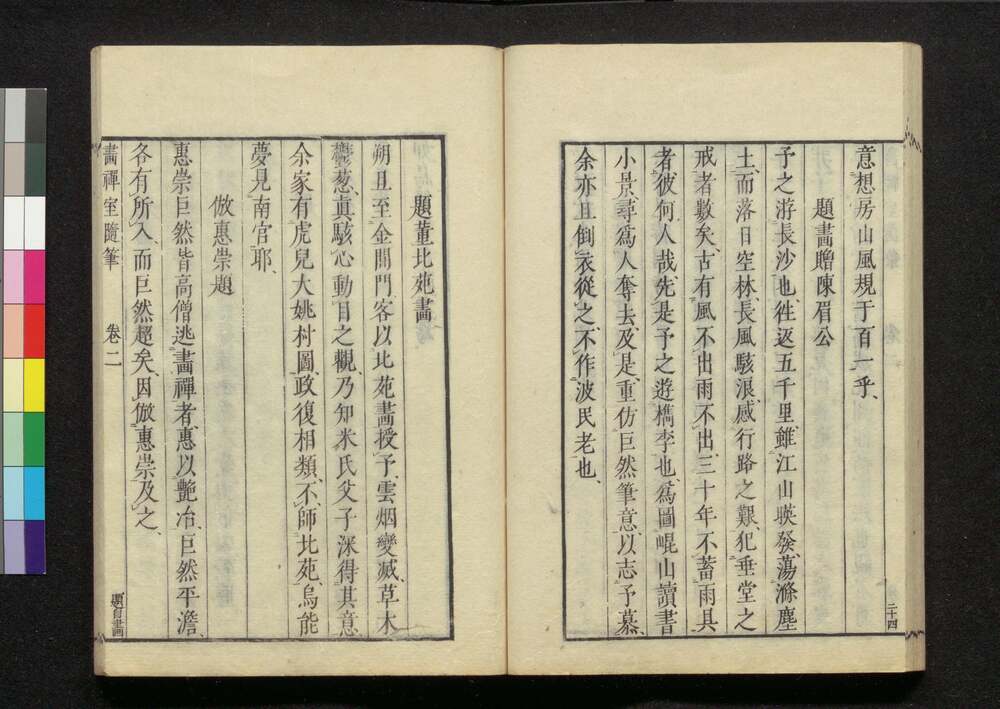 意想房山風規于百一乎
題畫贈陳眉公
予之游長沙也徃返五千里雖江山暎發蕩滌塵
土而落日空林長風駭浪感行路之艱犯垂堂之
戒者數矣古有風不出雨不出三十年不蓄雨具
者彼何人哉先是予之遊檇李也爲圖崐山讀書
小景尋爲人奪去及是重仿巨然筆意以志予慕
余亦且倒衣從之不作波民老也
二十四
題董北苑畫
朔旦至金閶門客以北苑畵授予雲烟變滅草木
鬱葱真駭心動目之觀乃知米氏父子深得其意
余家有虎兒大姚村圖政復相類不師北苑烏能
夢見南官耶
倣惠崇題
惠崇巨然皆高僧逃畵禪者惠以艶冶巨然平澹
各有所入而巨然超矣因倣惠崇及之
畵禪室隨筆 卷二
題自畵